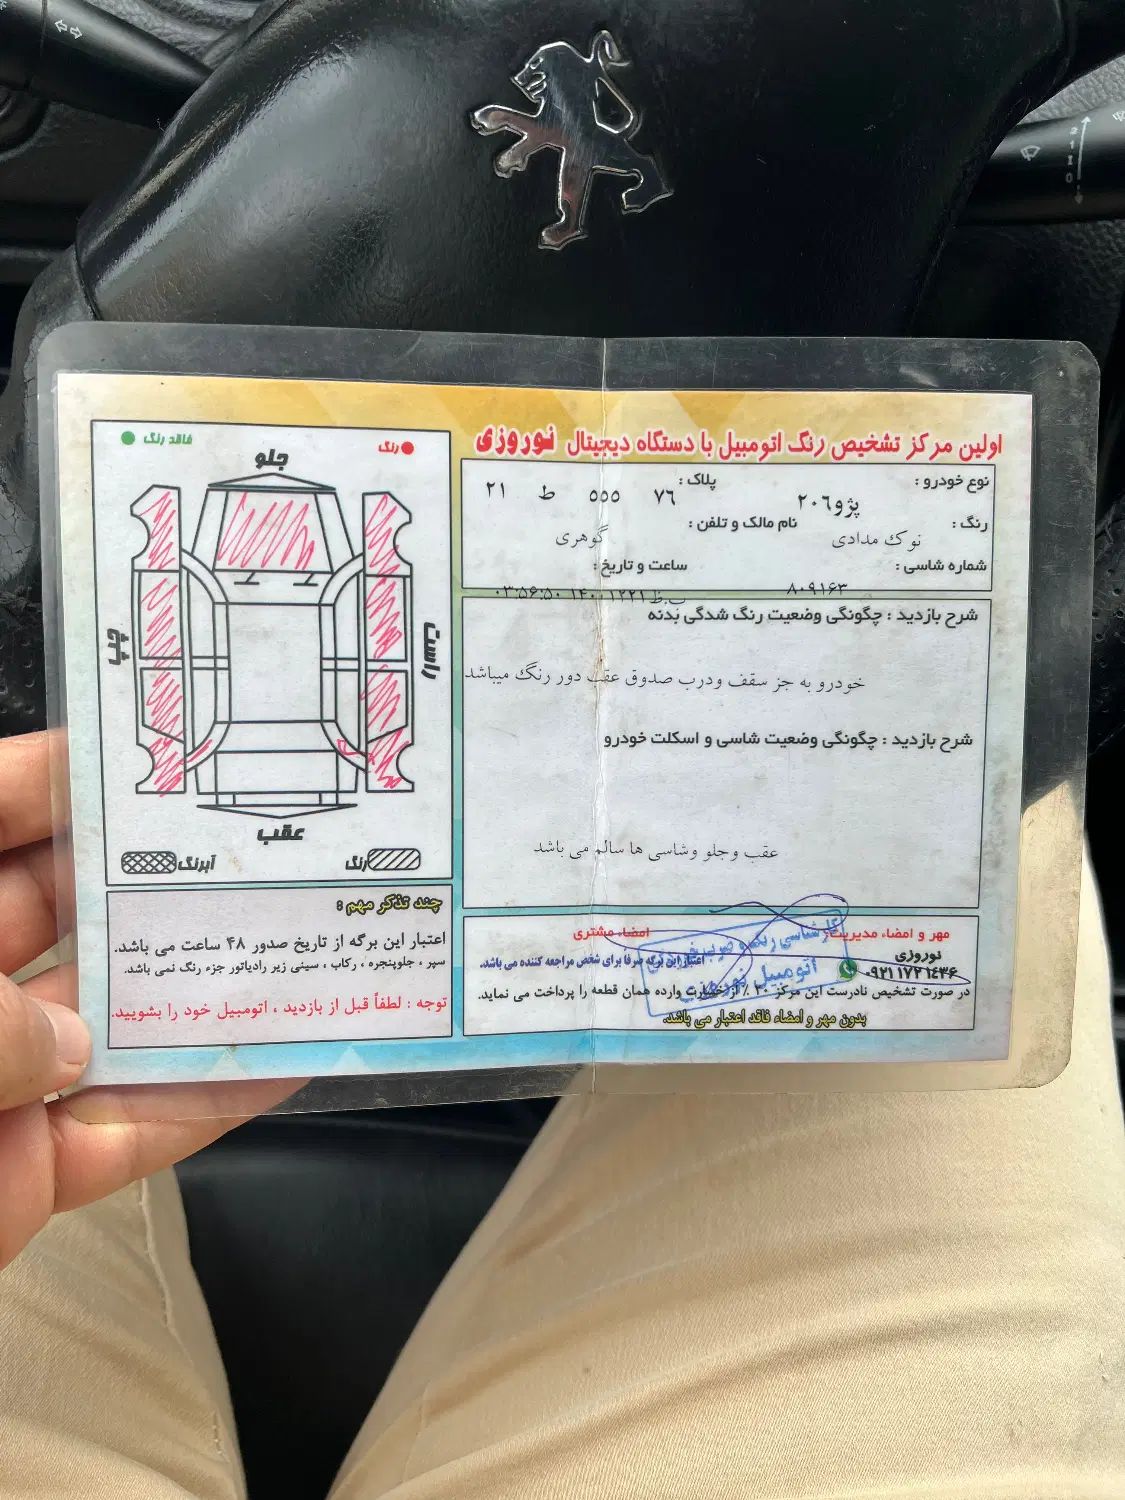 اولین مرکز تشخیص رنگ اتومبیل با دستگاه دیجیتال نوروزی
نوع خودرو :
پژو٢٠٦
پلاک :
٧٦ ٥٥٥ ط ٢١
رنگ :
نوک مدادی
نام مالک و تلفن :
گوهری
شماره شاسی :
٨٠٩١٦٣
ساعت و تاریخ :
شرح بازدید : چگونگی وضعیت رنگ شدگی بدنه
خودرو به جز سقف ودرب صدوق عقب دور رنگ میباشد
شرح بازدید : چگونگی وضعیت شاسی و اسکلت خودرو
عقب وجلو وشاسی ها سالم می باشد
مهر و امضاء مدیریت
امضاء مشتری
نوروزی
اعتبار این برگه صرفا برای شخص مراجعه کننده می باشد.
۰۹۲۱۱۷۲۱۴۳۶
در صورت تشخیص نادرست این مرکز ۲۰ ٪ از خسارت وارده همان قطعه را پرداخت می نماید.
بدون مهر و امضاء فاقد اعتبار می باشد.
اتومبیل نوروزی
رنگ
فاقد رنگ
جلو
راست
چپ
عقب
رنگ
آبرنگ
چند تذکر مهم :
اعتبار این برگه از تاریخ صدور ۴۸ ساعت می باشد.
سپر ، جلوپنجره ، رکاب ، سینی زیر رادیاتور جزء رنگ نمی باشد.
توجه : لطفاً قبل از بازدید ، اتومبیل خود را بشویید.